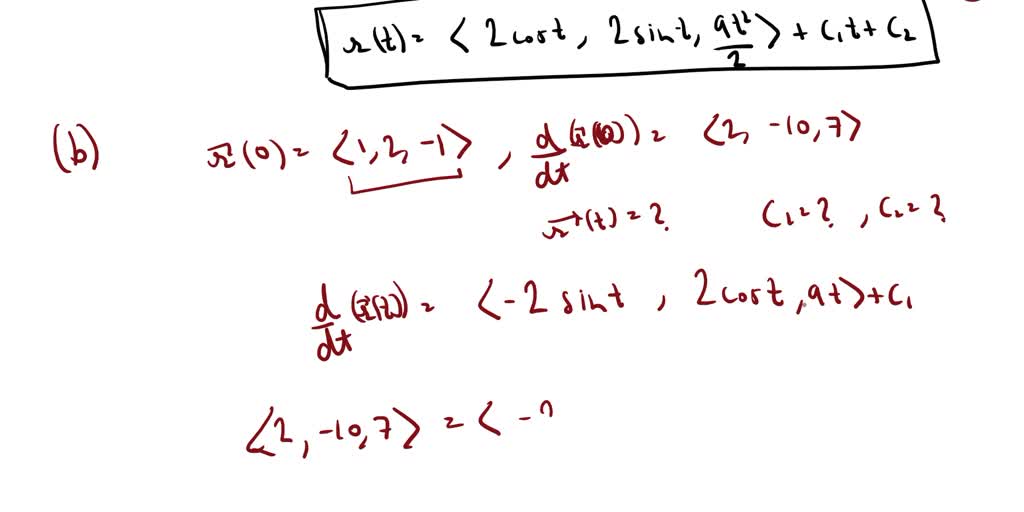 r(t) = ⟨ 2 cos t , 2 sin t , 9t²/2 ⟩ + C₁t + C₂
(b) r⃗(0) = ⟨1, 2, -1⟩ , d/dt (r⃗(0)) = ⟨2, -10, 7⟩
r⃗(t) = ? C₁ = ? , C₂ = ?
d/dt (r⃗(t)) = ⟨-2 sin t , 2 cos t , 9t⟩ + C₁
⟨2, -10, 7⟩ = ⟨ -2